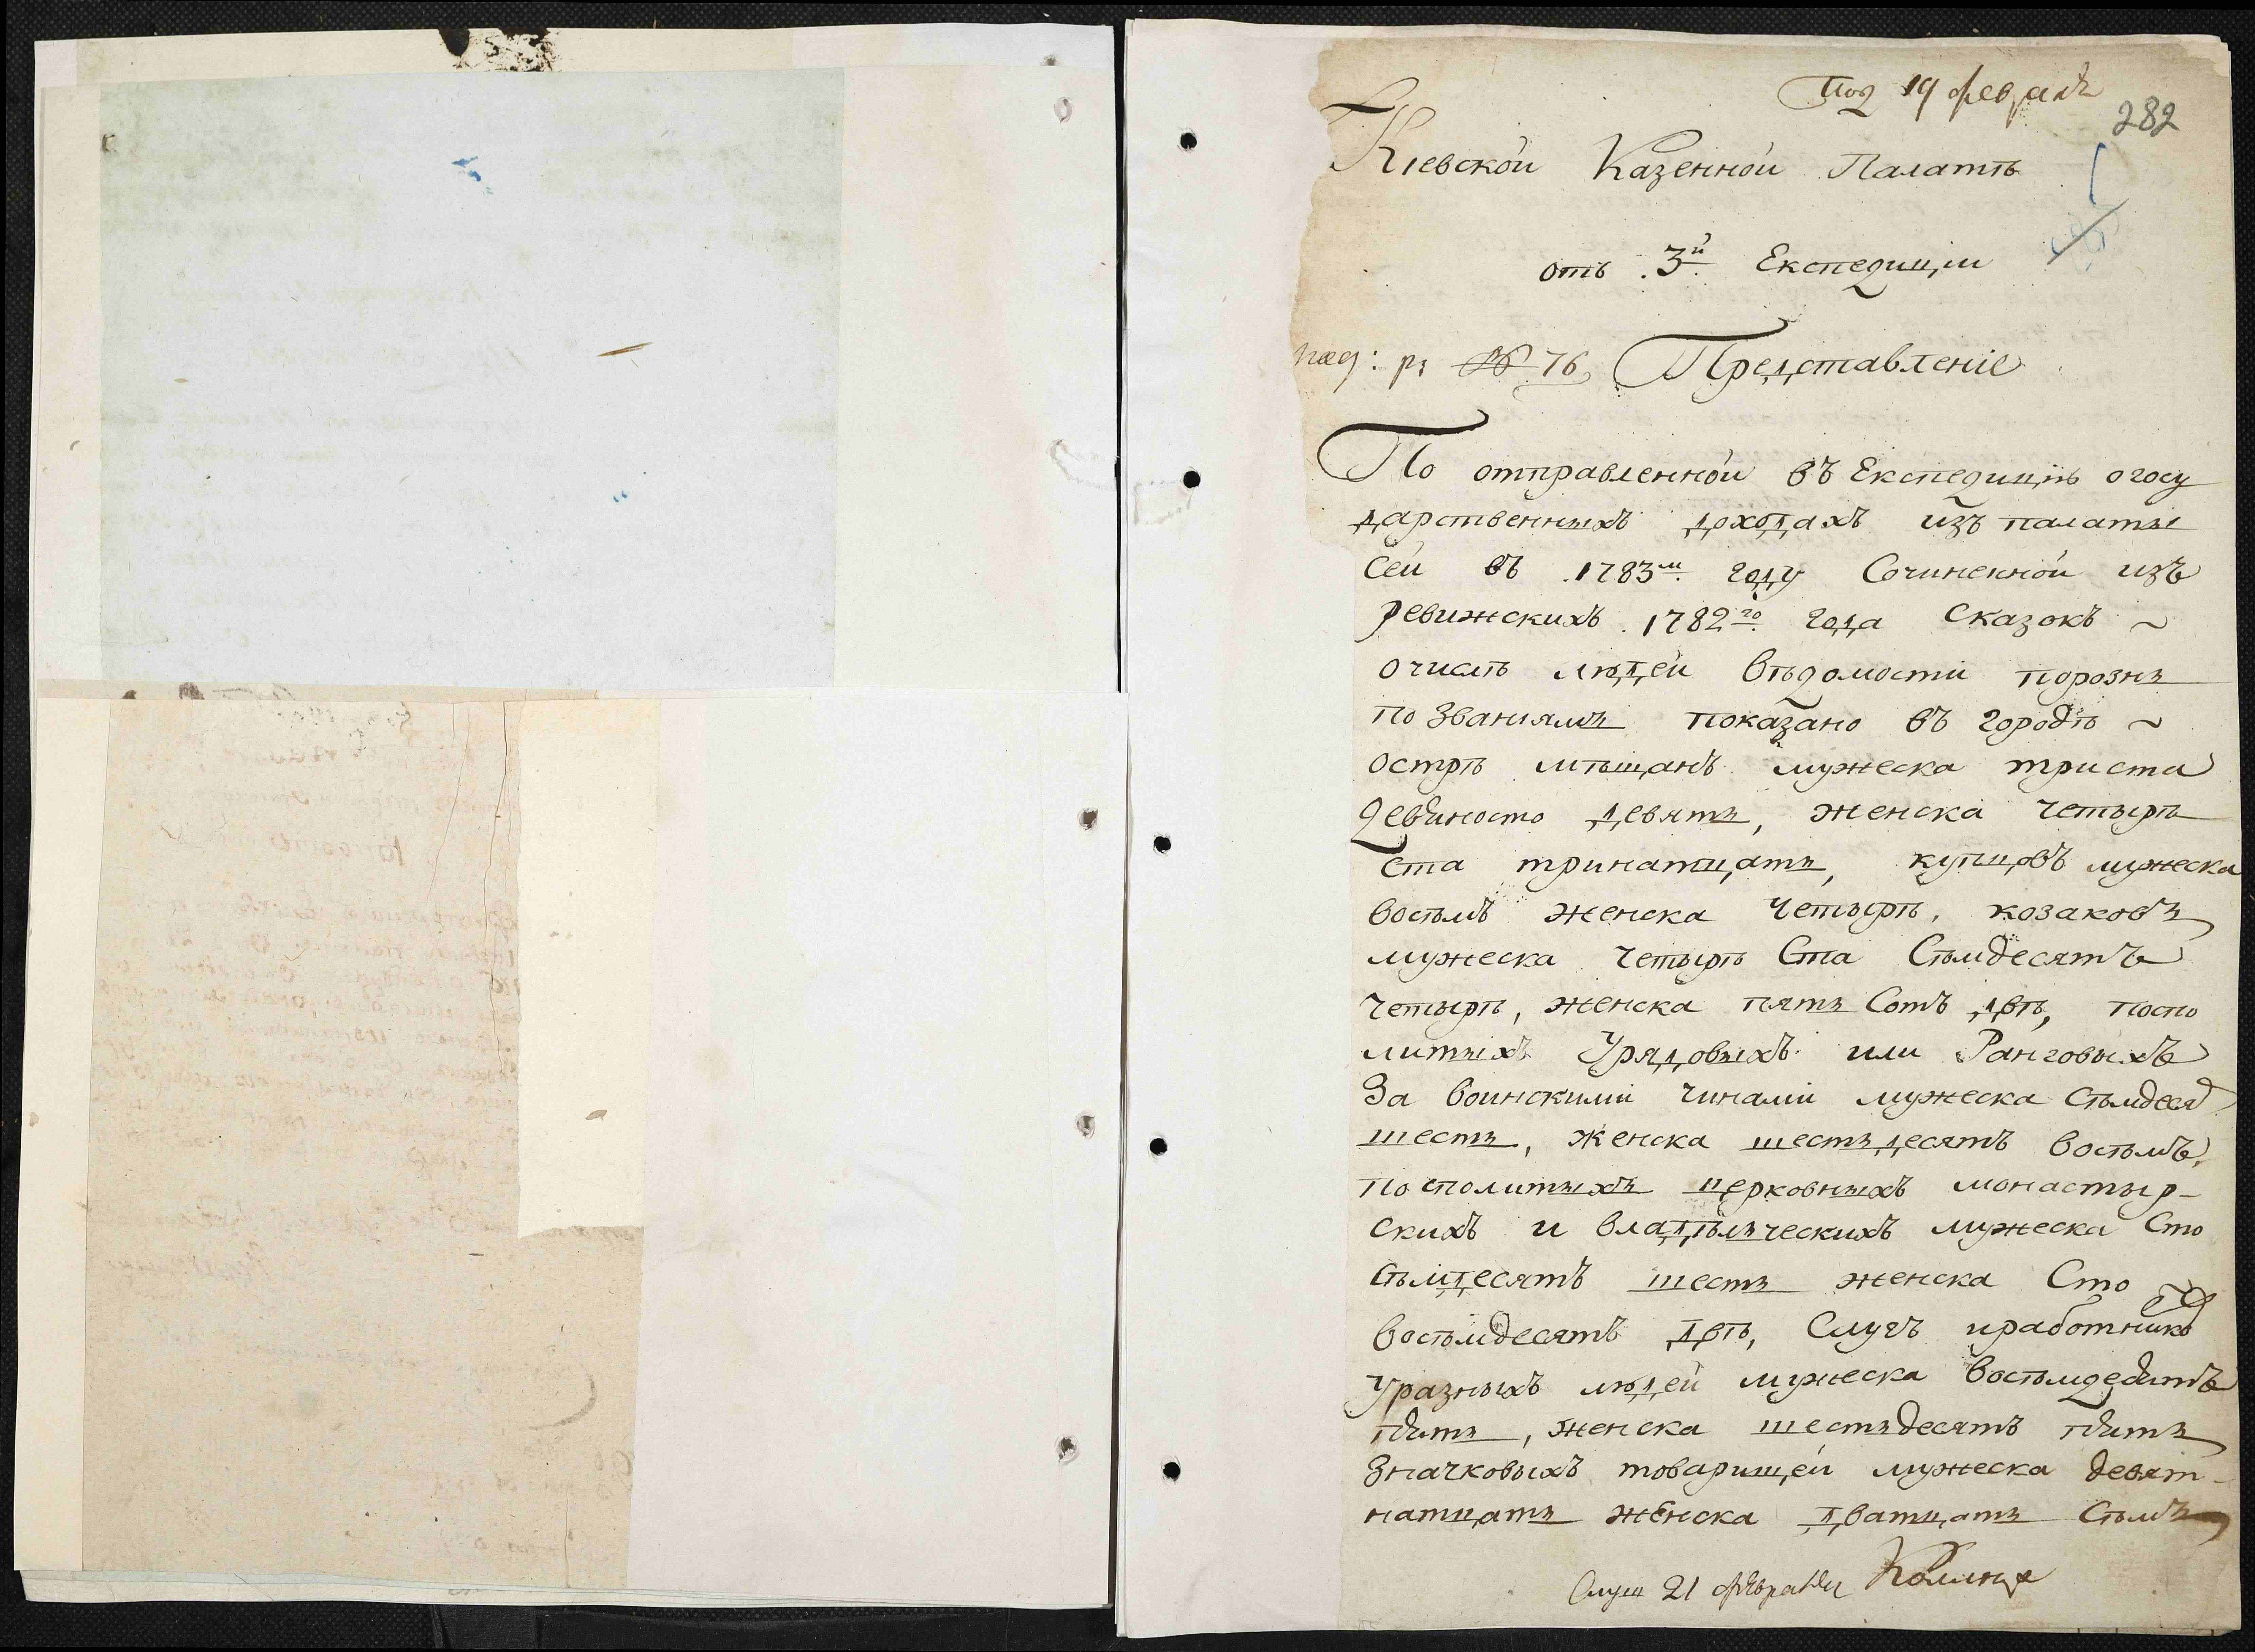 Под 19 февраля
282
Кіевской Казенной Палатѣ
отъ 3й Експедиціи
под: № 76 Представленіе
По отправленной въ Експедицію о госу
дарственныхъ доходахъ изъ палаты
сей въ 1783м году Сочиненной изъ
ревижскихъ 1782го года Сказокъ ~
о числѣ людей вѣдомости порознь
по званиямъ показано въ городѣ ~
острѣ мѣщанъ мужеска триста
девяносто девять, женска четырѣ
ста тринатцать, купцовъ мужеска
восѣмъ женска четырѣ, козаковъ
мужеска четырѣ Ста Сѣмдесятъ
четырѣ, женска пять Сотъ двѣ, поспо
литыхъ Урядовыхъ или Ранговыхъ
За воинскими чинами мужеска Сѣмдеся
шесть, женска шестьдесятъ восѣмъ,
посполитыхъ церковныхъ монастыр-
скихъ и владѣлческихъ мужеска Сто
сѣмдесятъ шесть женска Сто
восѣмдесятъ двѣ, Слугъ иработников
Уразныхъ людей мужеска восѣмдесятъ
пять, женска шестьдесятъ пять
Значковыхъ товарищей мужеска девят-
натцать женска дватцать Сѣмъ
Слуш 21 февраля